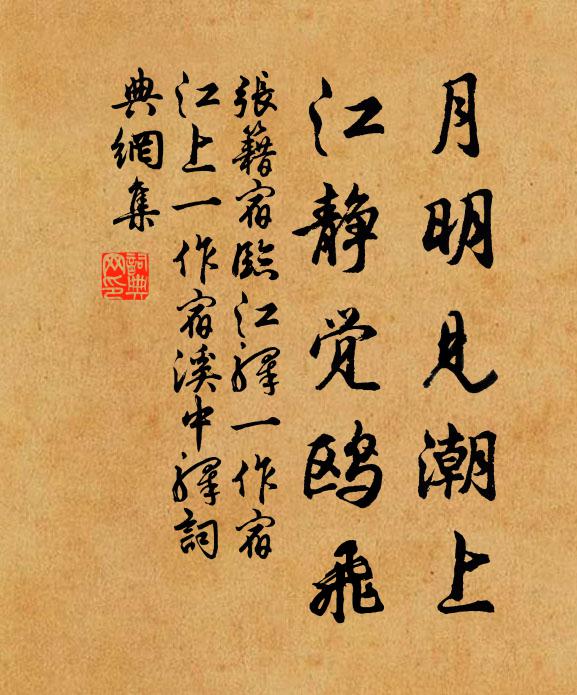 月明見潮上
江静觉鸥飛
張籍宿臨江驛一作宿
江上一作宿溪中驛詞
典網集
詞典网印